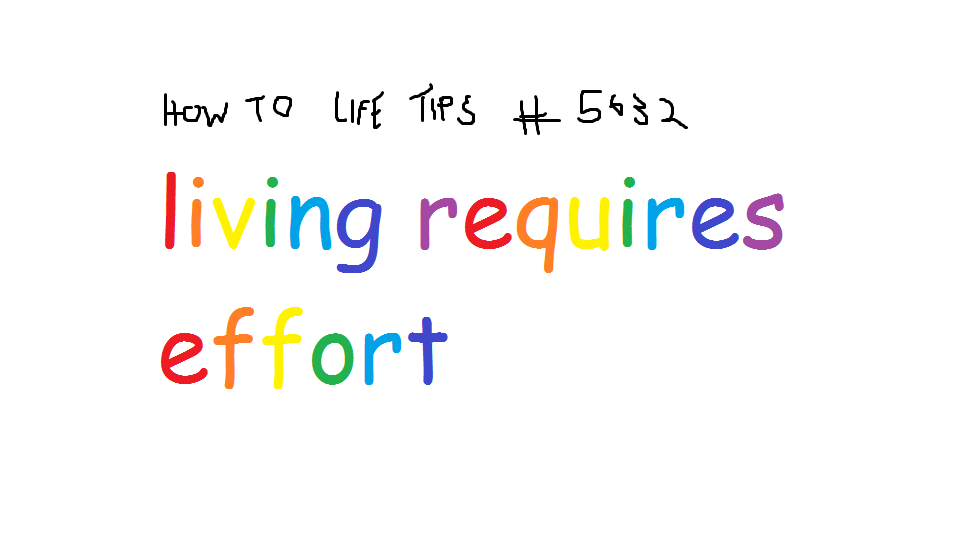 HOW TO LIFE TIPS # 5832
living requires
effort